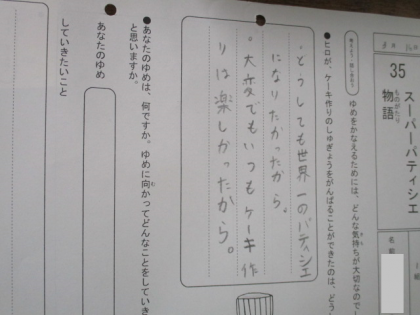 35
スーパーパティシエ
物語
ものがたり
ゆめをかなえるためには、どんな気持ちが大切なのでし
●ヒロが、ケーキ作りのしゅぎょうをがんばることができたのは、どう
・どうしても世界一のパティシエ
になりたかったから。
・大変でもいつもケーキ作
りは楽しかったから。
●あなたのゆめは、何ですか。ゆめに向かってどんなことをしていき
と思いますか。
あなたのゆめ
していきたいこと